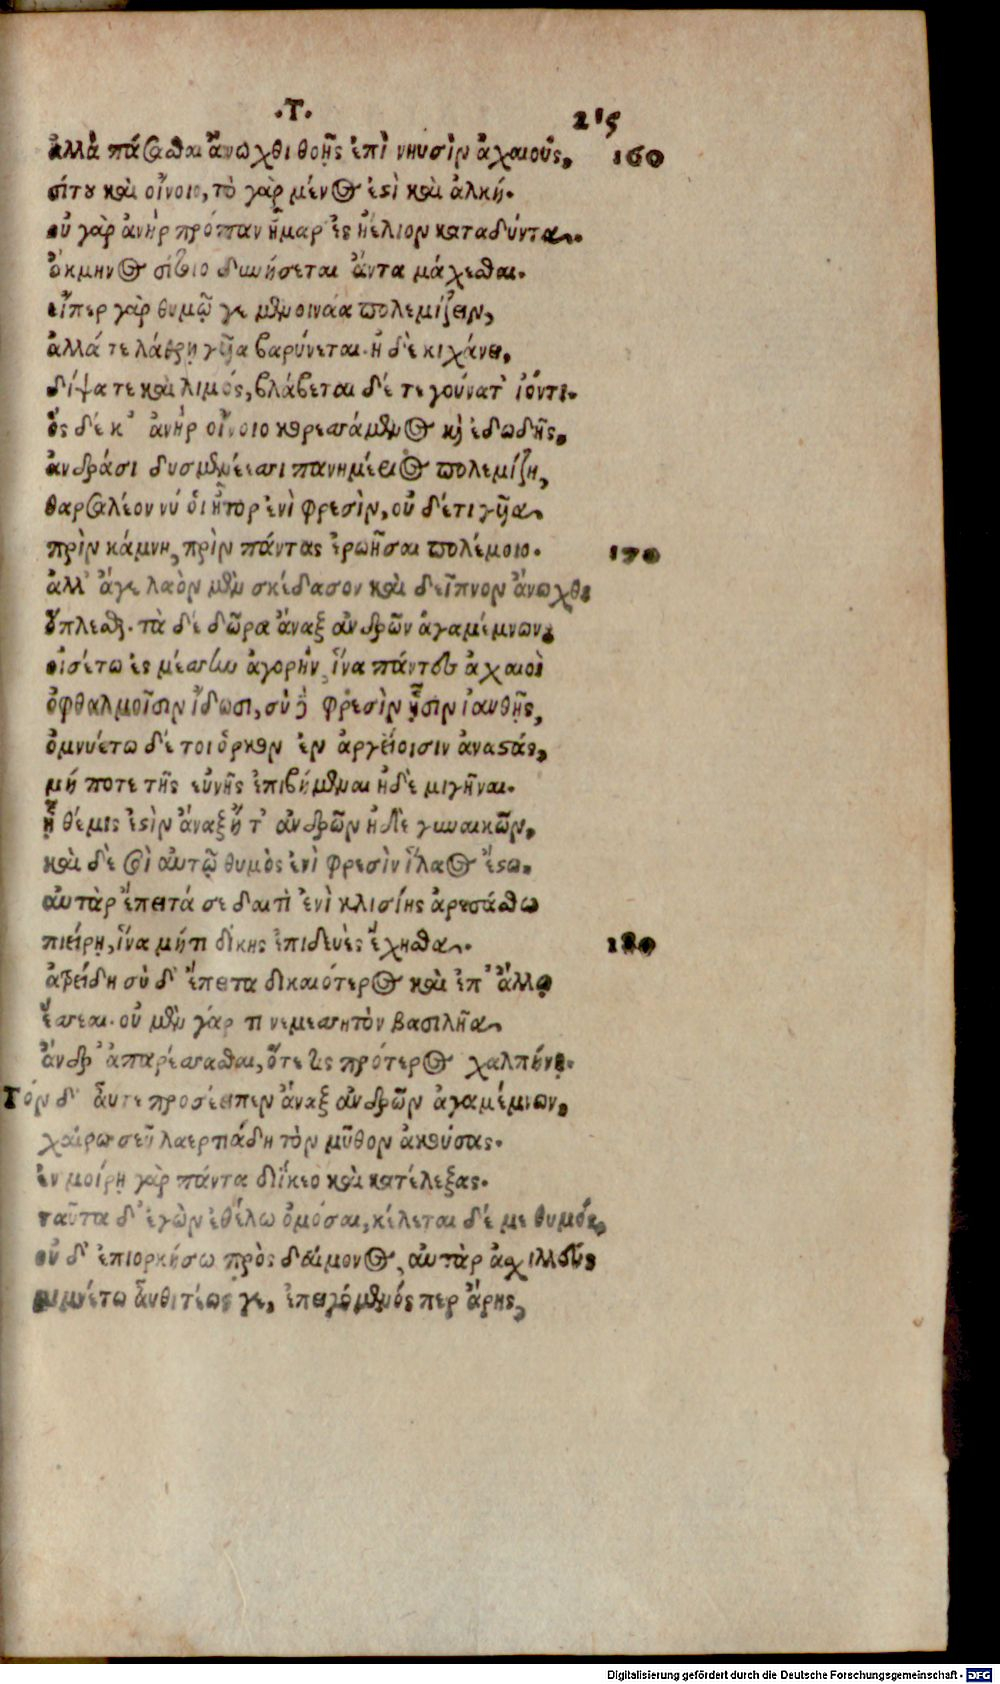 .Τ. 215
ἀλλὰ πάσασθαι ἄνωχθι θοῇς ἐπὶ νηυσὶν ἀχαιοὺς, 160
σίτου καὶ οἴνοιο, τὸ γὰρ μένος ἐστὶ καὶ ἀλκή.
οὐ γὰρ ἀνὴρ πρόπαν ἦμαρ ἐς ἠέλιον καταδύντα.
ἄκμηνος σίτοιο δυνήσεται ἄντα μάχεσθαι.
εἴπερ γὰρ θυμῷ γε μενοινάα πολεμίζειν,
ἀλλά τε λάθρῃ γῦια βαρύνεται. ἠ δὲ κιχάνει,
δίψα τε καὶ λιμός, βλάβεται δέ τε γούνατ' ἰόντι.
ὃς δέ κ' ἀνὴρ οἴνοιο κορεσσάμενος καὶ ἐδωδῆς,
ἀνδράσι δυσμενέεσσι πανημέριος πολεμίζῃ,
θαρσαλέον νύ οἱ ἦτορ ἐνὶ φρεσὶν, οὐ δέ τι γῦια
πρὶν κάμνῃ, πρὶν πάντας ἐρωῆσαι πολέμοιο. 170
ἀλλ' ἄγε λαὸν μὲν σκέδασον καὶ δεῖπνον ἄνωχθι
ὅπλεσθαι. τὰ δὲ δῶρα ἄναξ ἀνδρῶν ἀγαμέμνων,
οἰσέτω ἐς μέσσην ἀγορὴν, ἵνα πάντες ἀχαιοὶ
ὀφθαλμοῖσιν ἴδωσι, σὺ δὲ φρεσὶν ᾗσιν ἰανθῇς,
ὀμνυέτω δέ τοι ὅρκον ἐν ἀργείοισιν ἀναστὰς,
μή ποτε τῆς εὐνῆς ἐπιβήμεναι ἠδὲ μιγῆναι.
ᾗ θέμις ἐστὶν ἄναξ ἤ τ' ἀνδρῶν ἠδὲ γυναικῶν,
καὶ δὲ σοὶ αὐτῷ θυμὸς ἐνὶ φρεσὶν ἵλαος ἔστω.
αὐτὰρ ἔπειτά σε δαιτὶ ἐνὶ κλισίῃς ἀρεσάσθω
πιείρῃ, ἵνα μήτι δίκης ἐπιδευὲς ἔχῃσθα. 180
ἀτρείδη σὺ δ' ἔπειτα δικαιότερος καὶ ἐπ' ἄλλῳ
ἔσσεαι. οὐ μὲν γάρ τι νεμεσσητὸν βασιλῆα
ἄνδρ' ἀπαρέσσασθαι, ὅτε τις πρότερος χαλεπήνῃ.
Τὸν δ' αὖτε προσέειπεν ἄναξ ἀνδρῶν ἀγαμέμνων,
χαίρω σεῦ λαερτιάδη τὸν μῦθον ἀκούσας.
ἐν μοίρῃ γὰρ πάντα διΐκεο καὶ κατέλεξας.
ταῦτα δ' ἐγὼν ἐθέλω ὀμόσαι, κέλεται δέ με θυμός,
οὐ δ' ἐπιορκήσω πρὸς δαίμονος, αὐτὰρ ἀχιλλεὺς
μιμνέτω αὖθι τέως γε, ἐπειγόμενός περ ἄρης,
Digitalisierung gefördert durch die Deutsche Forschungsgemeinschaft - DFG